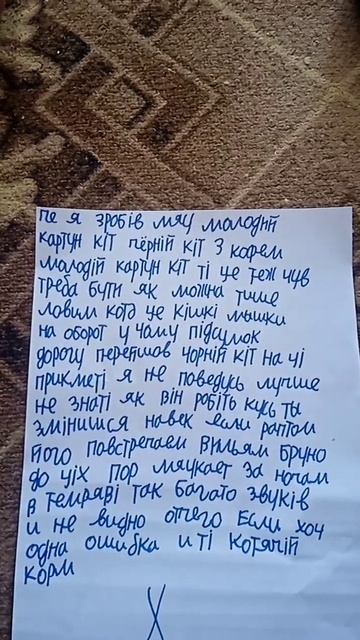 пе я зробів мяу молодий
картун кіт пёрній кіт з кофем
молодій картун кіт ті це теж чув
треба бути як можна тише
ловим кота це кішкі мышки
на оборот у чому підсумок
дорогу перейшов чорній кіт на чі
прикметі я не поведусь лучше
не знаті як він робіть кусь ты
змінишся навек если раптом
його повстречаем Вильям Бруно
до чіх пор мяукает за ночам
в темряві так багато звуків
и не видно отчего Если хоч
одна ошибка и ті котячій
корм
X